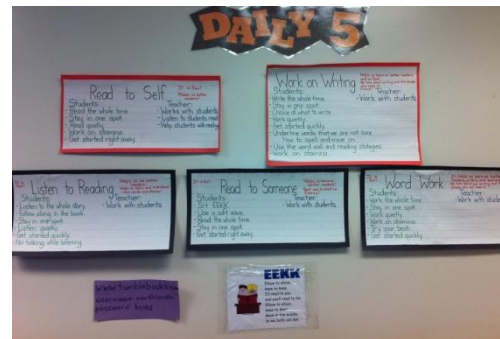 DAILY 5
Read to Self
Students:
- Read the whole time.
- Stay in one spot.
- Read quietly.
- Work on stamina.
- Get started right away.
Teacher:
- Work with students
- Listen to students read
- Help students with
Work on Writing
Students:
- Write the whole time.
- Stay in one spot.
- Choice of what to write.
- Work quietly.
- Get started quickly.
- Underline words that we are not sure
how to spell and move on.
- Use the word wall and reading strategies.
- Work on stamina.
Teacher:
- Work with students
Listen to Reading
Students:
- Listen to the whole story.
- Follow along in the book.
- Stay in one spot.
- Listen quietly.
- Get started quickly.
- No talking while listening.
Teacher:
- Work with students
Read to Someone
Students:
- Sit EEKK
- Use a soft voice.
- Read the whole time.
- Stay in one spot.
- Get started right away.
Teacher:
- Work with students.
Word Work
Students:
- Work the whole time.
- Stay in one spot.
- Work quietly.
- Work on stamina.
- Try your best.
- Get started quickly.
Teacher:
- Work with stude
www.tumblebooks
username:
password: books
EEKK
Elbow to elbow,
knee to knee,
I'll read to you
and you'll read to me.
Elbow to elbow,
knee to knee
Book in the middle
so we both can see.